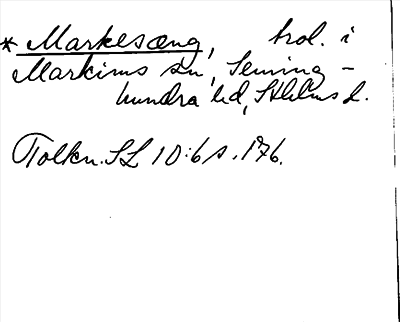 * Markesæng, trol. i
Markims sn, Seming-
hundra hd, Sthlms L.
Tolkn. SL 10:6 s. 176.